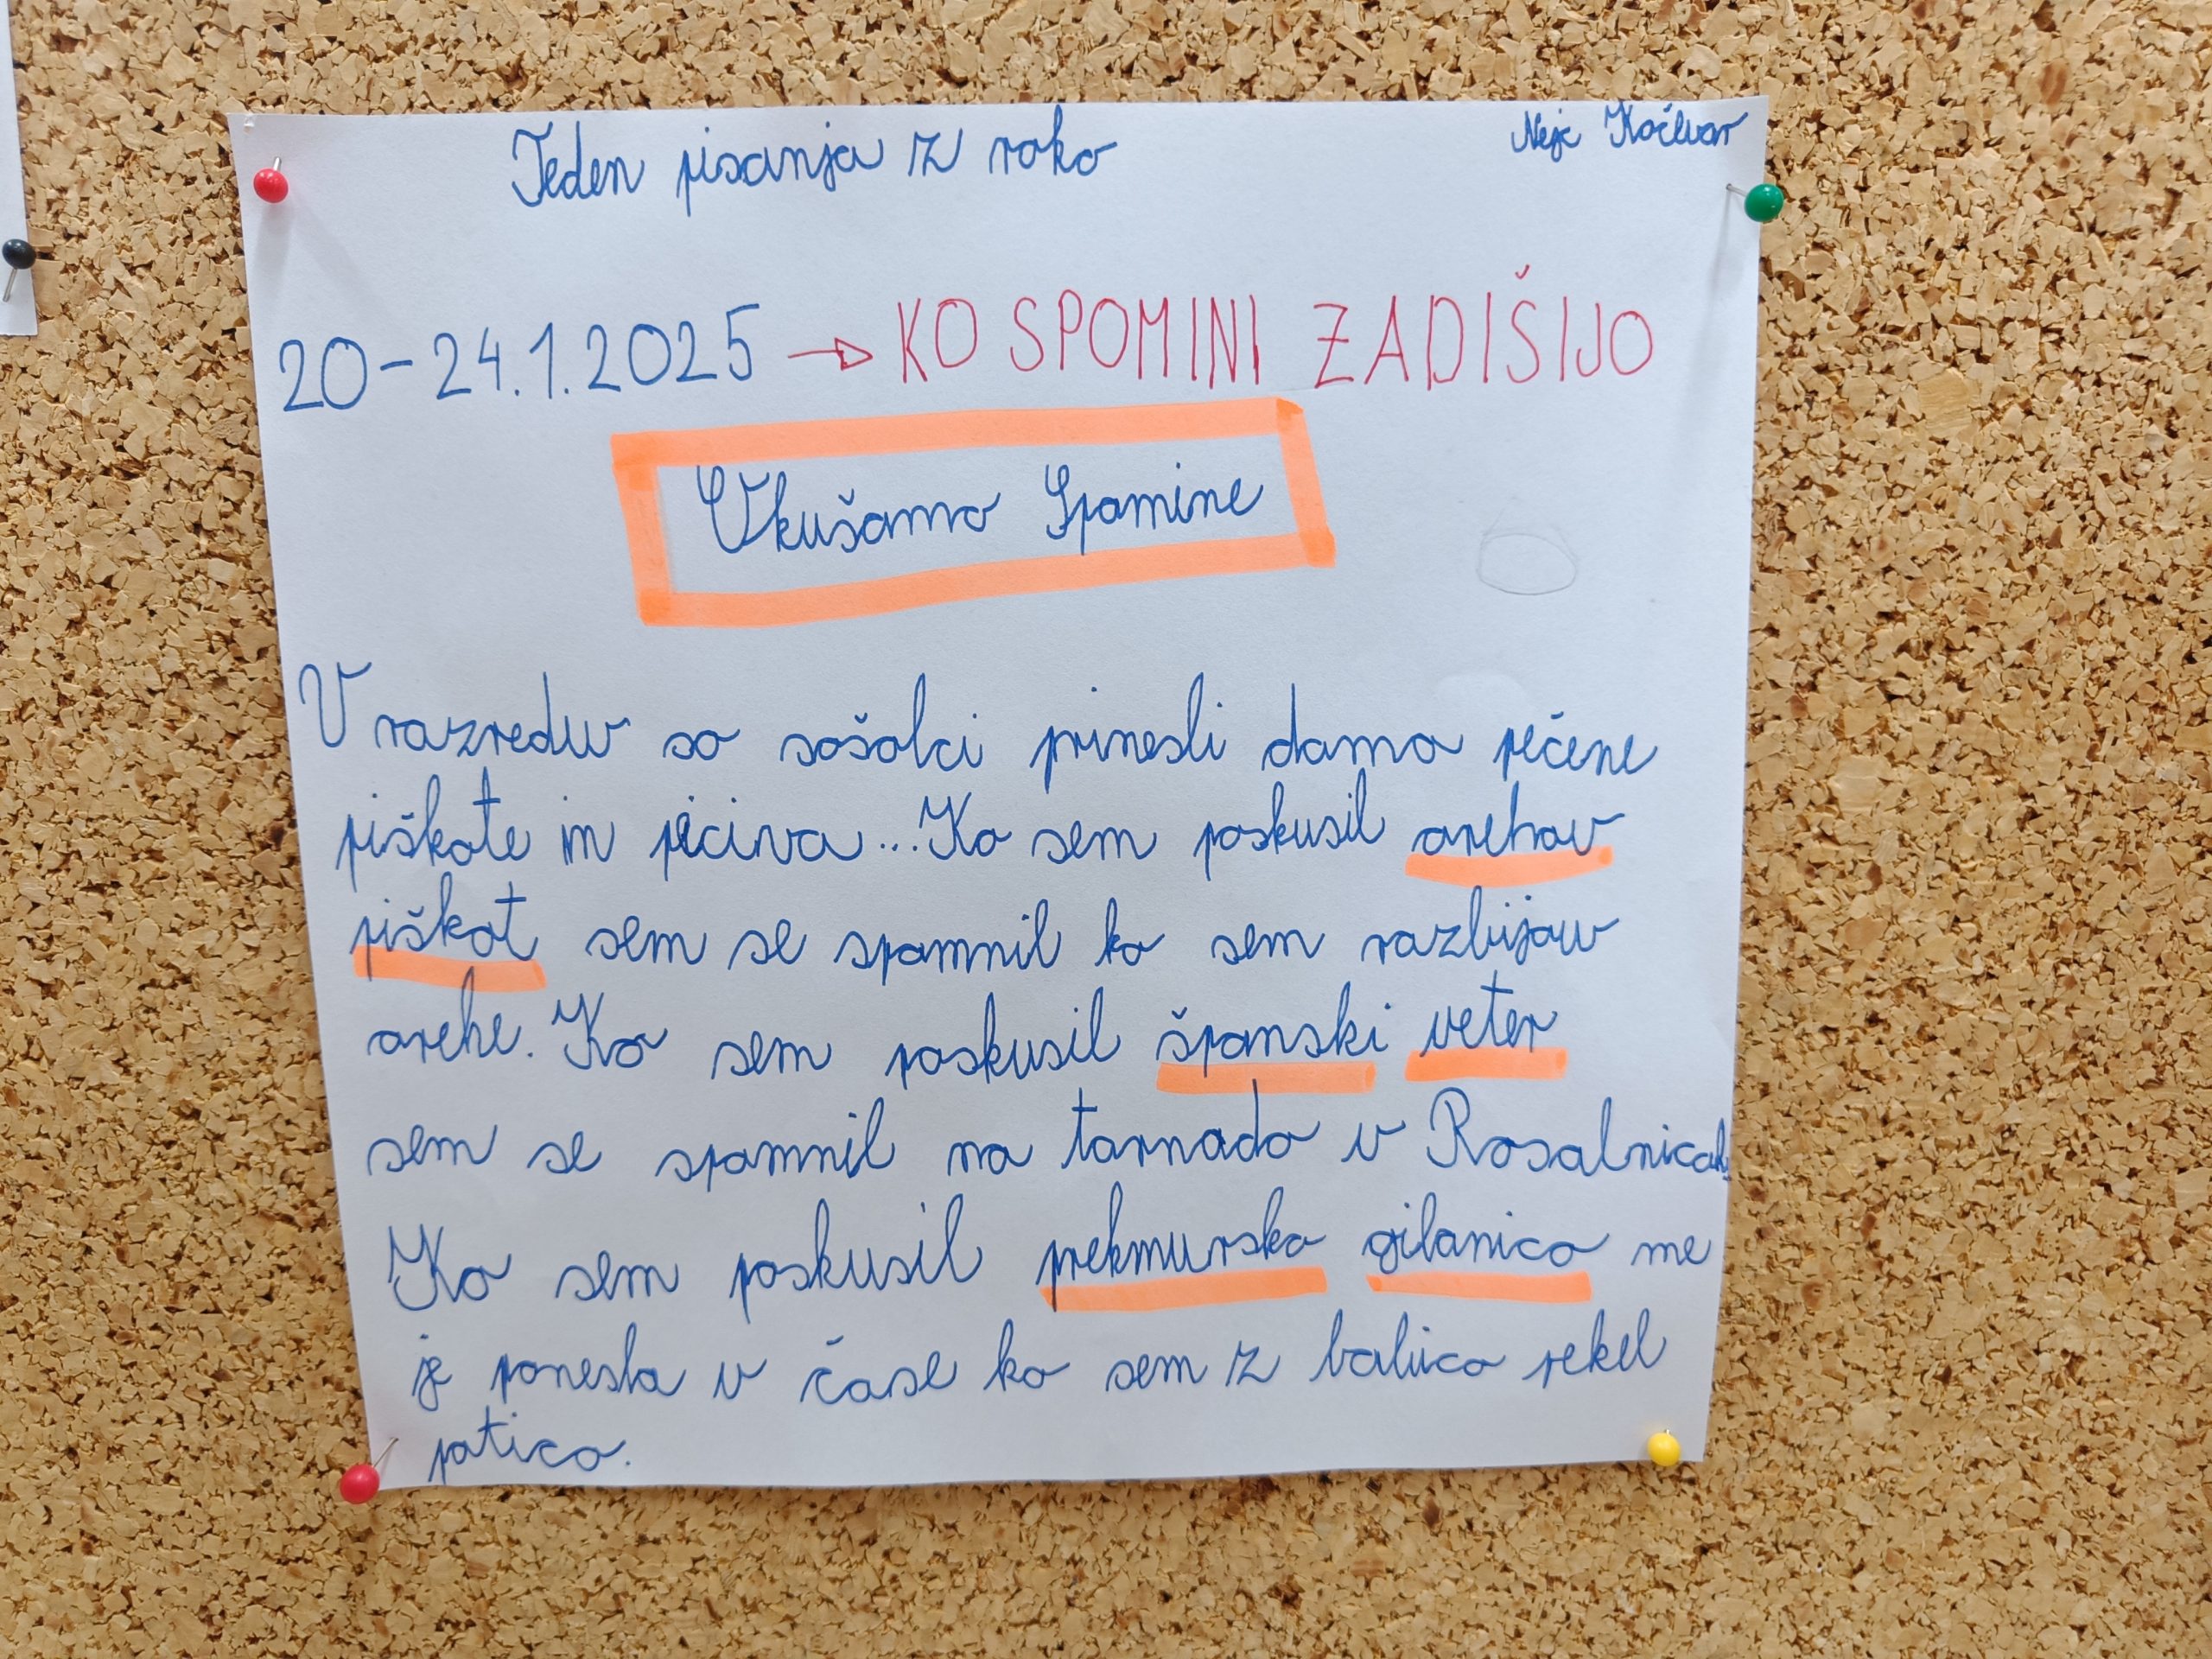 Teden pisanja z roko
Nejc Kočevar
20-24.1.2025 → KO SPOMINI ZADIŠIJO
Okušamo Spomine
V razredu so sošolci prinesli doma pečene
piškote in peciva...Ko sem poskusil orehov
piškot sem se spomnil ko sem razbijau
orehe. Ko sem poskusil španski veter
sem se spomnil na tornado v Rosalnicah.
Ko sem poskusil prekmursko gibanico me
je ponesla v čase ko sem z babico rekel
potico.